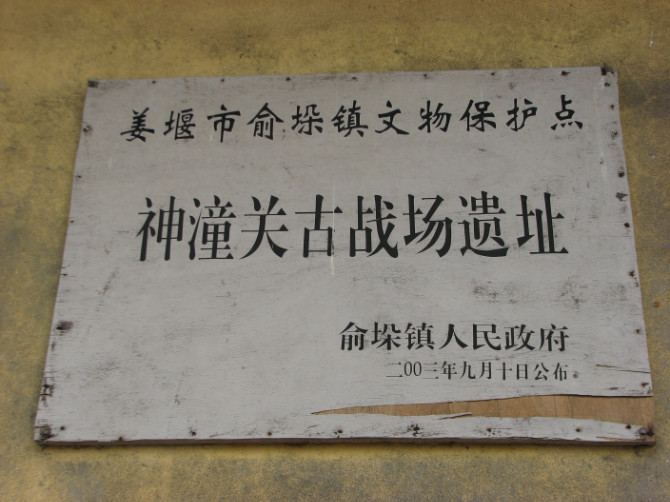 姜堰市俞垛镇文物保护点
神潼关古战场遗址
俞垛镇人民政府
二00三年九月十日公布